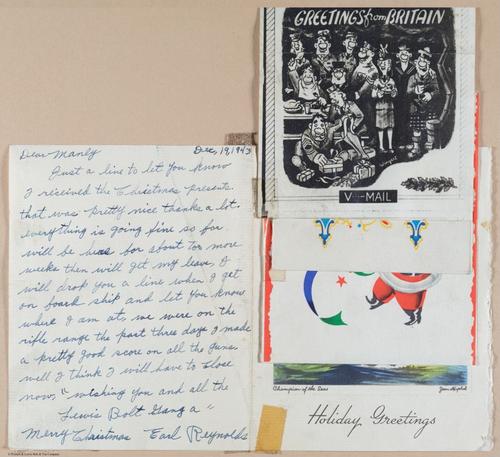 GREETINGS from BRITAIN
V-MAIL
Dec, 19, 1943
Dear Manly
Just a line to let you know
I received the Christmas presents
that was pretty nice thanks a lot.
everything is going fine so far
will be here for about two more
weeks then will get my leave, I
will drop you a line when I get
on board ship and let you know
where I am at, we were on the
rifle range the past three days I made
a pretty good score on all the guns
well I think I will have to close
now, "wishing you and all the
Lewis Bolt Gang a"
Merry Christmas Earl Reynolds
Champion of the Seas
Holiday Greetings